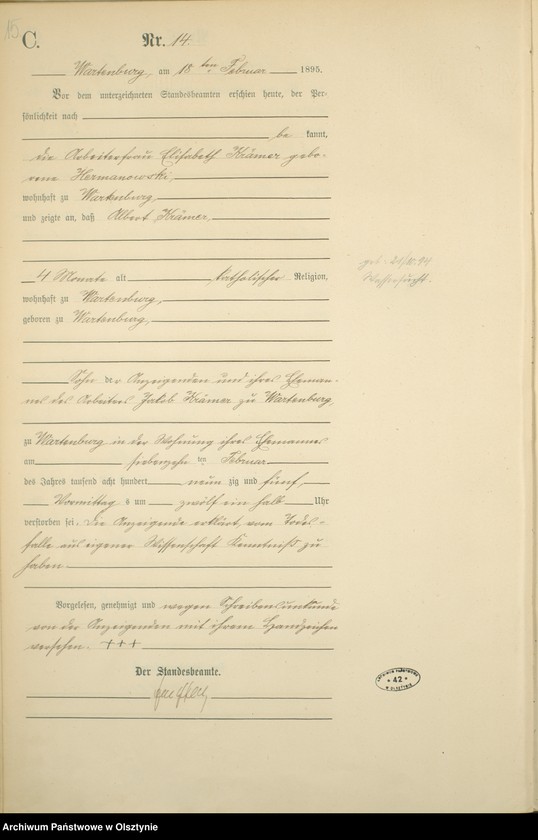 15
C.
Nr. 14.
Wartenburg, am 18ten Februar 1895.
Vor dem unterzeichneten Standesbeamten erschien heute, der Per-
sönlichkeit nach
be kannt,
die Arbeiterfrau Elisabeth Krämer gebo-
rene Hermanowski,
wohnhaft zu Wartenburg
und zeigte an, daß Albert Krämer,
4 Monate alt, katholischer Religion,
wohnhaft zu Wartenburg,
geboren zu Wartenburg,
Sohn der Anzeigenden und ihres Eheman-
nes des Arbeiters Jakob Krämer zu Wartenburg,
zu Wartenburg in der Wohnung ihres Ehemannes
am siebenzehnten Februar
des Jahres tausend acht hundert neun zig und fünf,
Vormittags um zwölf ein halb Uhr
verstorben sei. Die Anzeigende erklärt, vom Todes-
falle aus eigener Wissenschaft Kenntniß zu
haben
Vorgelesen, genehmigt und wegen Schreibensunkunde
von der Anzeigenden mit ihrem Handzeichen
versehen. +++
Der Standesbeamte.
geb.
42
Archiwum Państwowe w Olsztynie